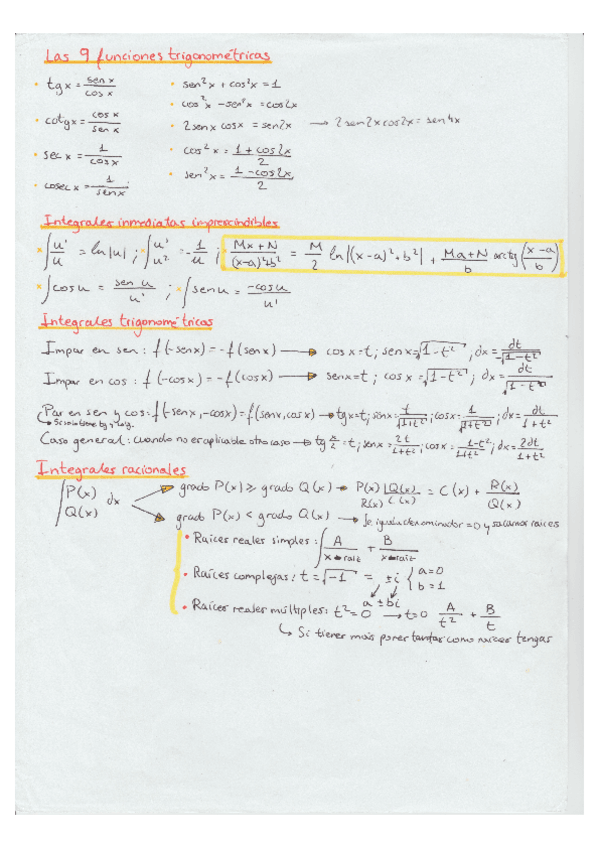 Las 9 funciones trigonométricas
• tg x = sen x / cos x
• cotg x = cos x / sen x
• sec x = 1 / cos x
• cosec x = 1 / sen x
• sen²x + cos²x = 1
• cos²x - sen²x = cos2x
• 2senx cosx = sen2x → 2sen2xcos2x = sen4x
• cos²x = (1 + cos2x) / 2
• sen²x = (1 - cos2x) / 2
Integrales inmediatas imprescindibles
× ∫ u'/u = ln|u| ; × ∫ u'/u² = - 1/u ; ∫ (Mx+N)/((x-a)²+b²) = M/2 ln|(x-a)²+b²| + (Ma+N)/b arctg((x-a)/b)
× ∫ cosu = sen u / u' ; × ∫ senu = -cosu / u'
Integrales trigonométricas
Impar en sen: f(-senx) = -f(senx) → cosx=t ; senx=√(1-t²) ; dx = dt/√(1-t²)
Impar en cos: f(-cosx) = -f(cosx) → senx=t ; cosx=√(1-t²) ; dx = dt/√(1-t²)
Par en sen y cos: f(-senx,-cosx) = f(senx,cosx) → tgx=t ; senx= t/√(1+t²) ; cosx= 1/√(1+t²) ; dx= dt/(1+t²)
Caso general: cuando no es aplicable otro caso → tg x/2 = t ; senx = 2t/(1+t²) ; cosx = (1-t²)/(1+t²) ; dx = 2dt/(1+t²)
Integrales racionales
∫ P(x)/Q(x) dx
→ grado P(x) ≥ grado Q(x) → P(x) |Q(x) R(x) C(x) = C(x) + R(x)/Q(x)
→ grado P(x) < grado Q(x) → Se iguala denominador = 0 y sacamos raíces
• Raíces reales simples: ∫ A/(x-raíz) + B/(x-raíz)
• Raíces complejas: t = √-1 = ±i { a=0 b=1
a ± bi
• Raíces reales múltiples: t² = 0 → t=0 A/t² + B/t
↳ Si tienes más pones tantas como raíces tengas